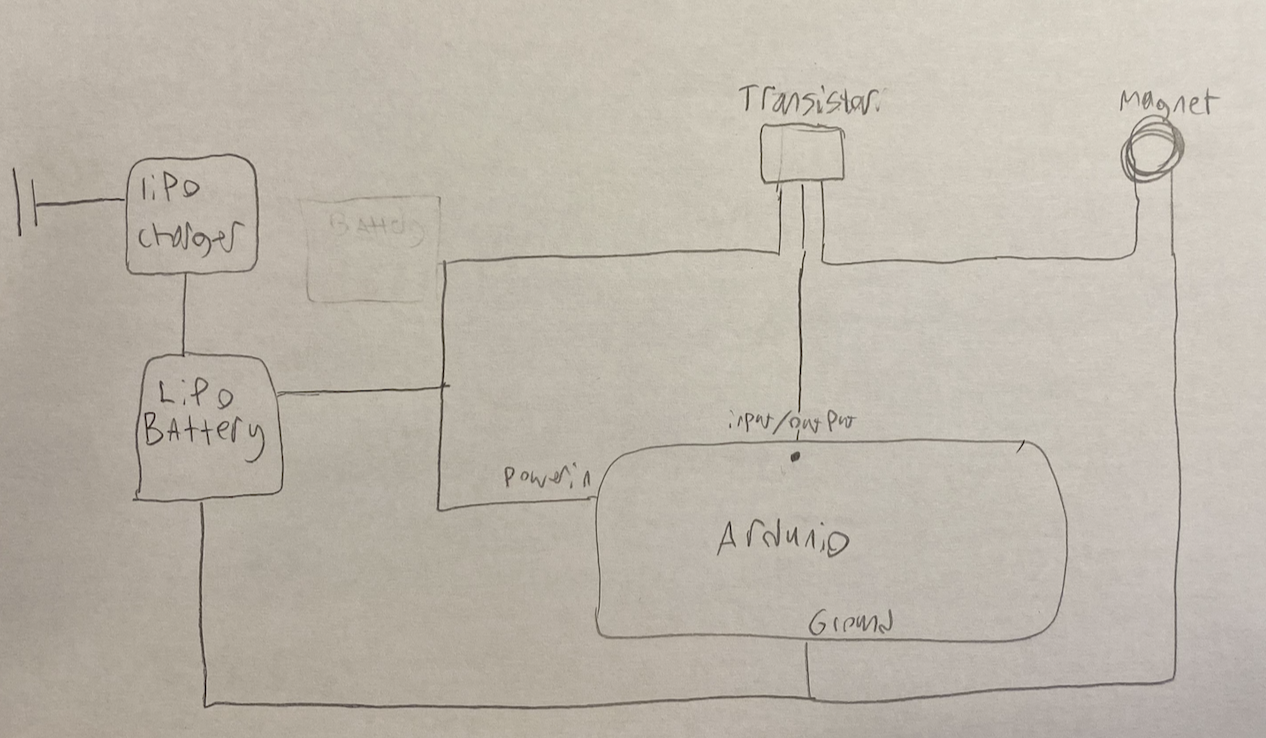 Transistor.
Magnet
liPo
charger
BAttery
LiPo
BAttery
input/output
Power in
Ardunio
Ground